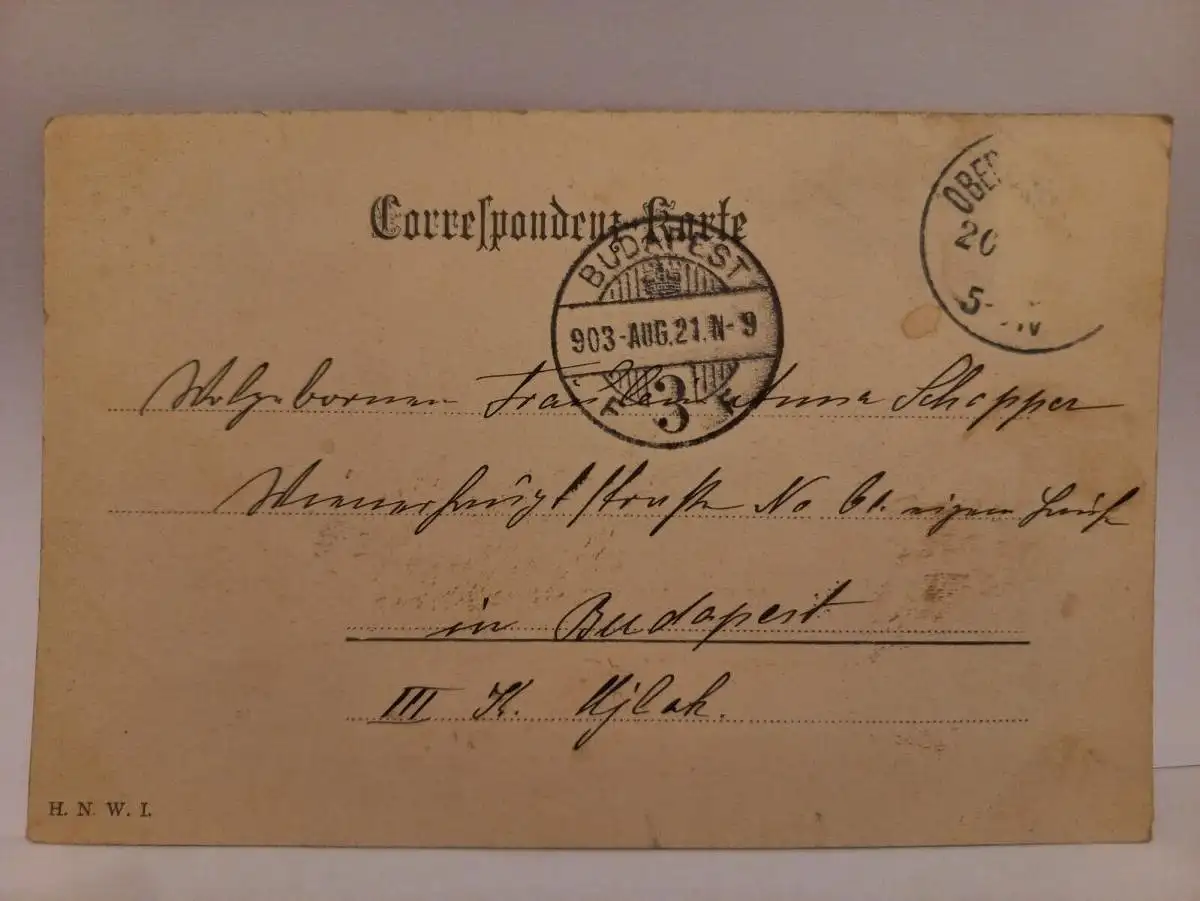 Correspondenz-Karte
OBER
20
5-N
BUDAPEST
903-AUG.21.N-9
T 3 F
Wolgebornen Fräulein Anna Schopper
Wienerhauptstraße No 61. eigen Hause
in Budapest
III K. Ujlak.
H. N. W. I.